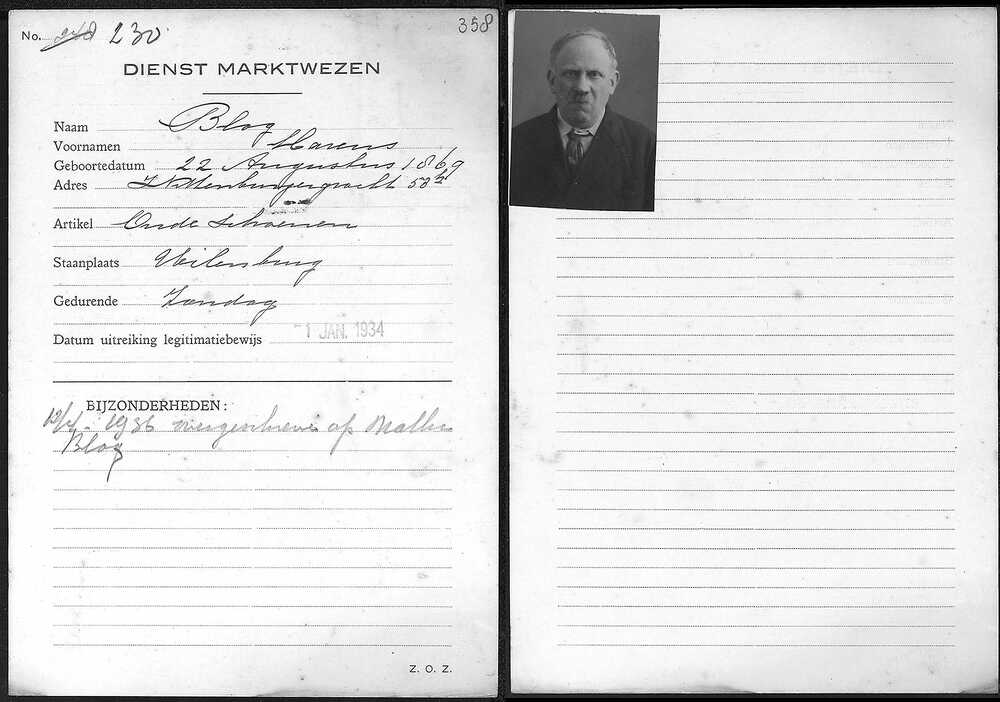 No. 248 230
358
DIENST MARKTWEZEN
Naam Blog
Voornamen Marcus
Geboortedatum 22 Augustus 1869
Adres N. Uilenburgergracht 58 h
Artikel Oude Schoenen
Staanplaats Uilenburg
Gedurende Zondag
Datum uitreiking legitimatiebewijs -1 JAN. 1934
BIJZONDERHEDEN:
1936 overgeschreven op
Blog
Z. O. Z.